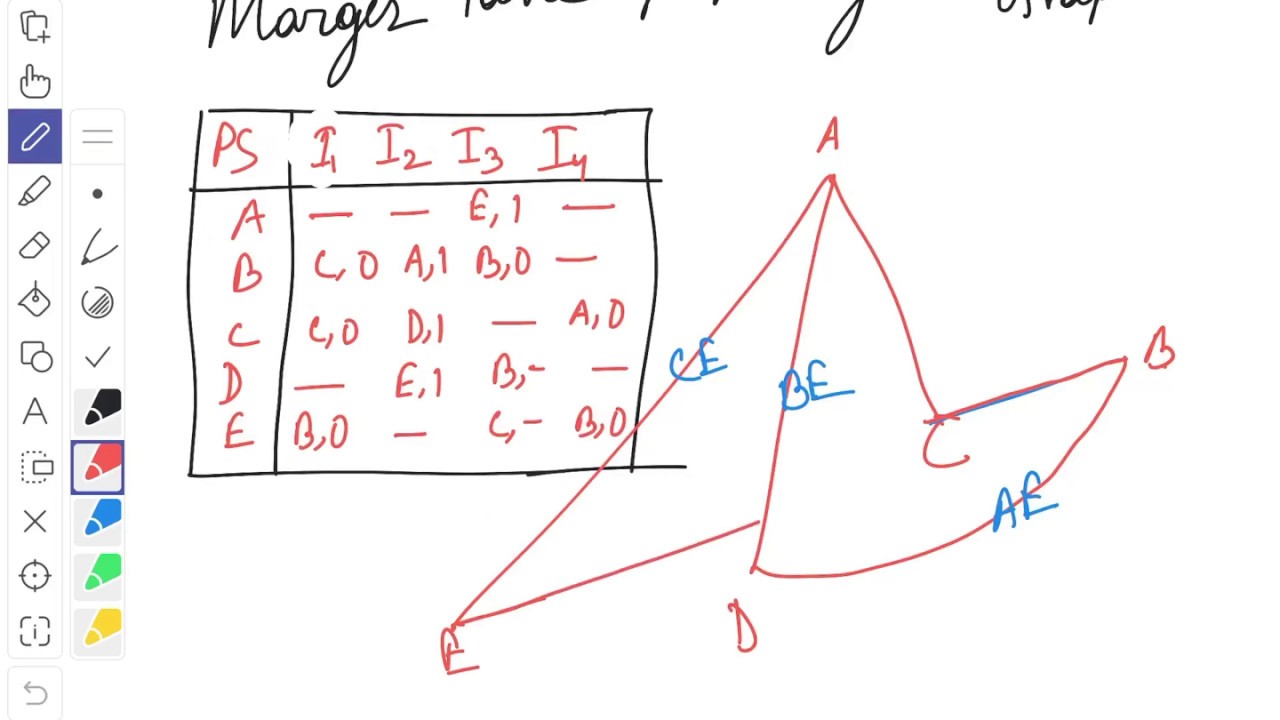 Marger
PS I1 I2 I3 I4
A — — E,1 —
B C,0 A,1 B,0 —
C C,0 D,1 — A,0
D — E,1 B,- —
E B,0 — C,- B,0
A
B
CE
BE
C
AE
D
E
A